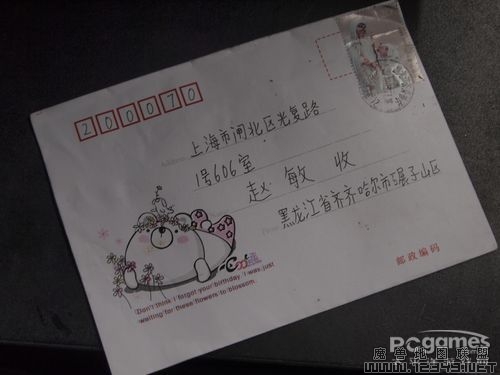 200070
上海市闸北区光复路
1号606室
赵敏 收
黑龙江省齐齐哈尔市碾子山区
Don't think I forgot your birthday. I was just
waiting for these flowers to blossom.
邮政编码
PCgames
魔兽地图联盟
WWW.12343.NET